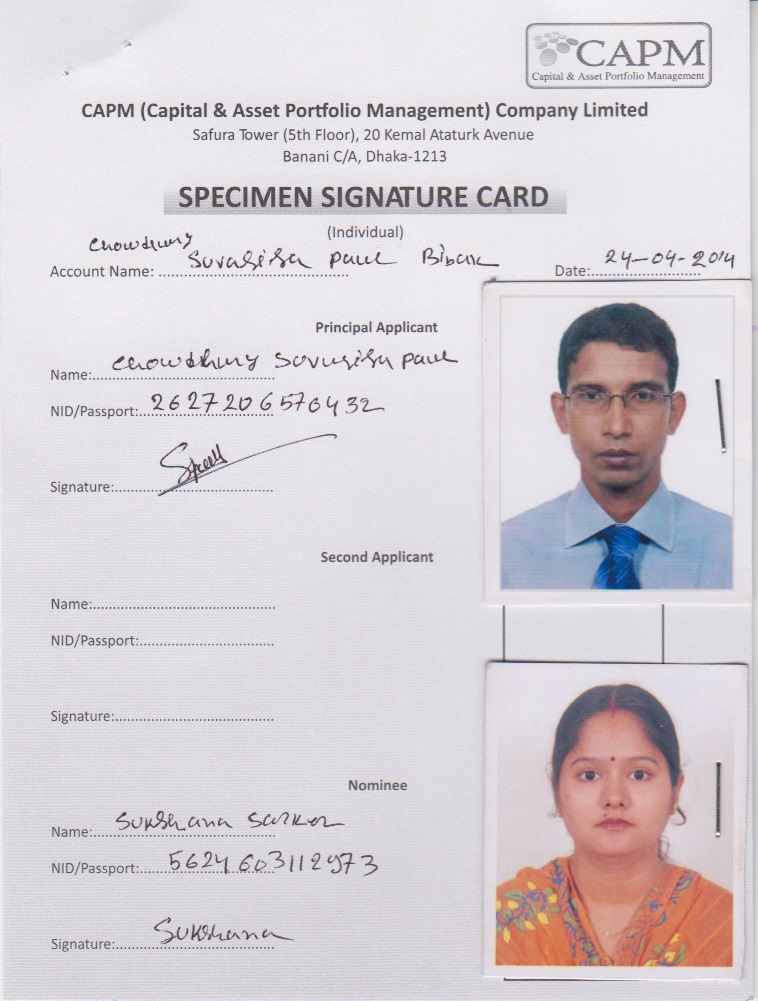 CAPM
Capital & Asset Portfolio Management
CAPM (Capital & Asset Portfolio Management) Company Limited
Safura Tower (5th Floor), 20 Kemal Ataturk Avenue
Banani C/A, Dhaka-1213
SPECIMEN SIGNATURE CARD
(Individual)
Chowdhury
Account Name: Suvasish Paul Date: 24-04-2014
Principal Applicant
Name: Chowdhury Suvasish Paul
NID/Passport: 2627206570432
Signature:
Second Applicant
Name:
NID/Passport:
Signature:
Nominee
Name: Sukshana Sarker
NID/Passport: 5624603112973
Signature: Sukshana